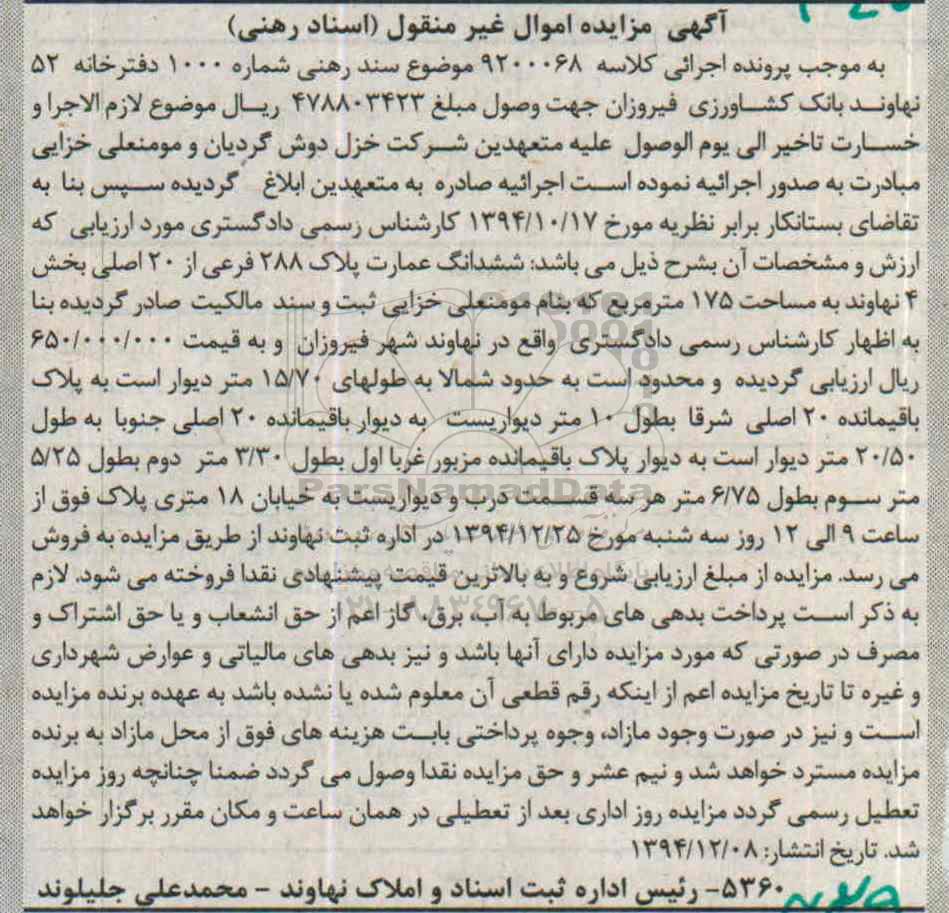 آگهی مزایده اموال غیر منقول (اسناد رهنی)
به موجب پرونده اجرائی کلاسه ۹۲۰۰۰۶۸ موضوع سند رهنی شماره ۱۰۰۰ دفترخانه ۵۲
نهاوند بانک کشاورزی فیروزان جهت وصول مبلغ ۴۷۸۸۰۳۴۲۳ ریال موضوع لازم الاجرا و
خسارت تاخیر الی یوم الوصول علیه متعهدین شرکت خزل دوش گردیان و مومنعلی خزایی
مبادرت به صدور اجرائیه نموده است اجرائیه صادره به متعهدین ابلاغ گردیده سپس بنا به
تقاضای بستانکار برابر نظریه مورخ ۱۳۹۴/۱۰/۱۷ کارشناس رسمی دادگستری مورد ارزیابی که
ارزش و مشخصات آن بشرح ذیل می باشد: ششدانگ عمارت پلاک ۲۸۸ فرعی از ۲۰ اصلی بخش
۴ نهاوند به مساحت ۱۷۵ مترمربع که بنام مومنعلی خزایی ثبت و سند مالکیت صادر گردیده بنا
به اظهار کارشناس رسمی دادگستری واقع در نهاوند شهر فیروزان و به قیمت ۶۵۰/۰۰۰/۰۰۰
ریال ارزیابی گردیده و محدود است به حدود شمالا به طولهای ۱۵/۷۰ متر دیوار است به پلاک
باقیمانده ۲۰ اصلی شرقا بطول ۱۰ متر دیواریست به دیوار باقیمانده ۲۰ اصلی جنوبا به طول
۲۰/۵۰ متر دیوار است به دیوار پلاک باقیمانده مزبور غربا اول بطول ۳/۳۰ متر دوم بطول ۵/۲۵
متر سوم بطول ۶/۷۵ متر هر سه قسمت درب و دیواریست به خیابان ۱۸ متری پلاک فوق از
ParsNamadData
ساعت ۹ الی ۱۲ روز سه شنبه مورخ ۱۳۹۴/۱۲/۲۵ در اداره ثبت نهاوند از طریق مزایده به فروش
می رسد. مزایده از مبلغ ارزیابی شروع و به بالاترین قیمت پیشنهادی نقدا فروخته می شود. لازم
به ذکر است پرداخت بدهی های مربوط به آب، برق، گاز اعم از حق انشعاب و یا حق اشتراک و
مصرف در صورتی که مورد مزایده دارای آنها باشد و نیز بدهی های مالیاتی و عوارض شهرداری
و غیره تا تاریخ مزایده اعم از اینکه رقم قطعی آن معلوم شده یا نشده باشد به عهده برنده مزایده
است و نیز در صورت وجود مازاد، وجوه پرداختی بابت هزینه های فوق از محل مازاد به برنده
مزایده مسترد خواهد شد و نیم عشر و حق مزایده نقدا وصول می گردد ضمنا چنانچه روز مزایده
تعطیل رسمی گردد مزایده روز اداری بعد از تعطیلی در همان ساعت و مکان مقرر برگزار خواهد
شد. تاریخ انتشار: ۱۳۹۴/۱۲/۰۸
۵۳۶۰- رئیس اداره ثبت اسناد و املاک نهاوند - محمدعلی جلیلوند